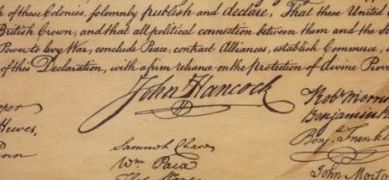 of these Colonies, solemnly publish and declare, That these United
British Crown, and that all political connection between them and the
Power to levy War, conclude Peace, contract Alliances, establish Commerce,
of this Declaration, with a firm reliance on the protection of divine
John Hancock
Robt Morris
Benjamin
Hewes,
Benja Frank
Samuel Chase
Wm Paca
Thos
John Morto